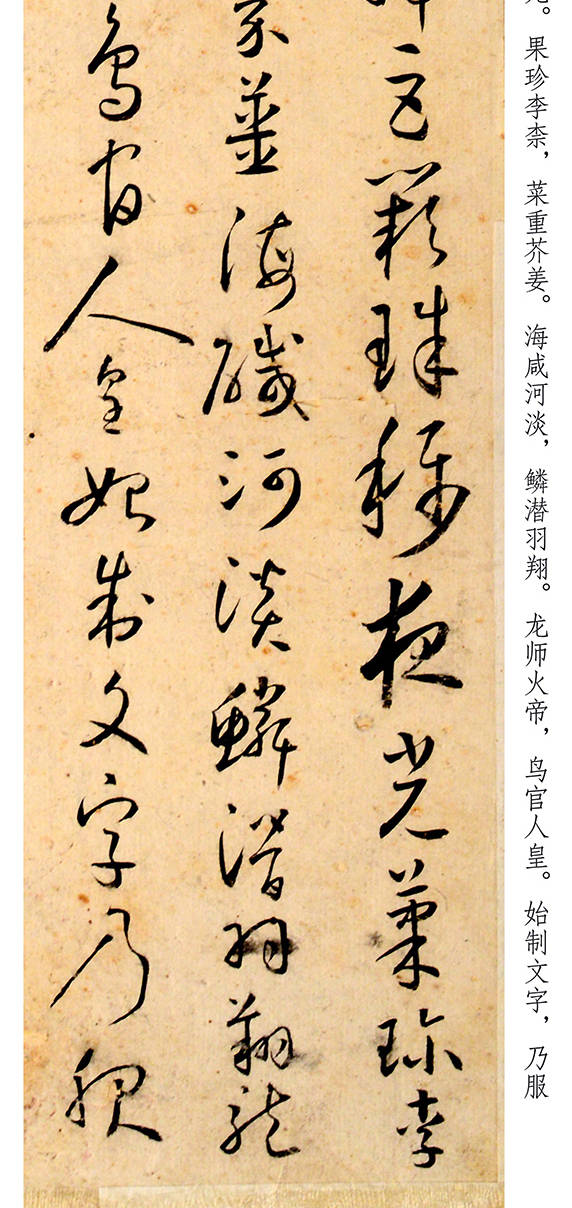 。果珍李柰，菜重芥姜。海咸河淡，鳞潜羽翔。龙师火帝，鸟官人皇。始制文字，乃服
巨闕珠稱夜光菓珍李
芥薑海醎河淡鱗潛羽翔龍
鳥官人皇始制文字乃服